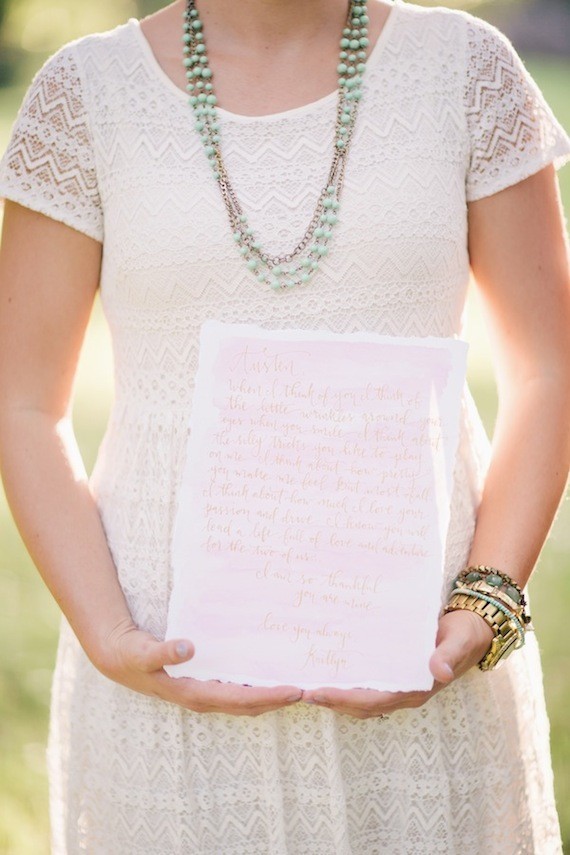 Austen
When I think of you I think of
the little wrinkles around your
eyes when you smile. I think about
the silly tricks you like to play
on me. I think about how pretty
you make me feel. But most of all
I think about how much I love your
passion and drive. I know you will
lead a life full of love and adventure
for the two of us.
I am so thankful
you are mine.
love you always
Kaitlyn